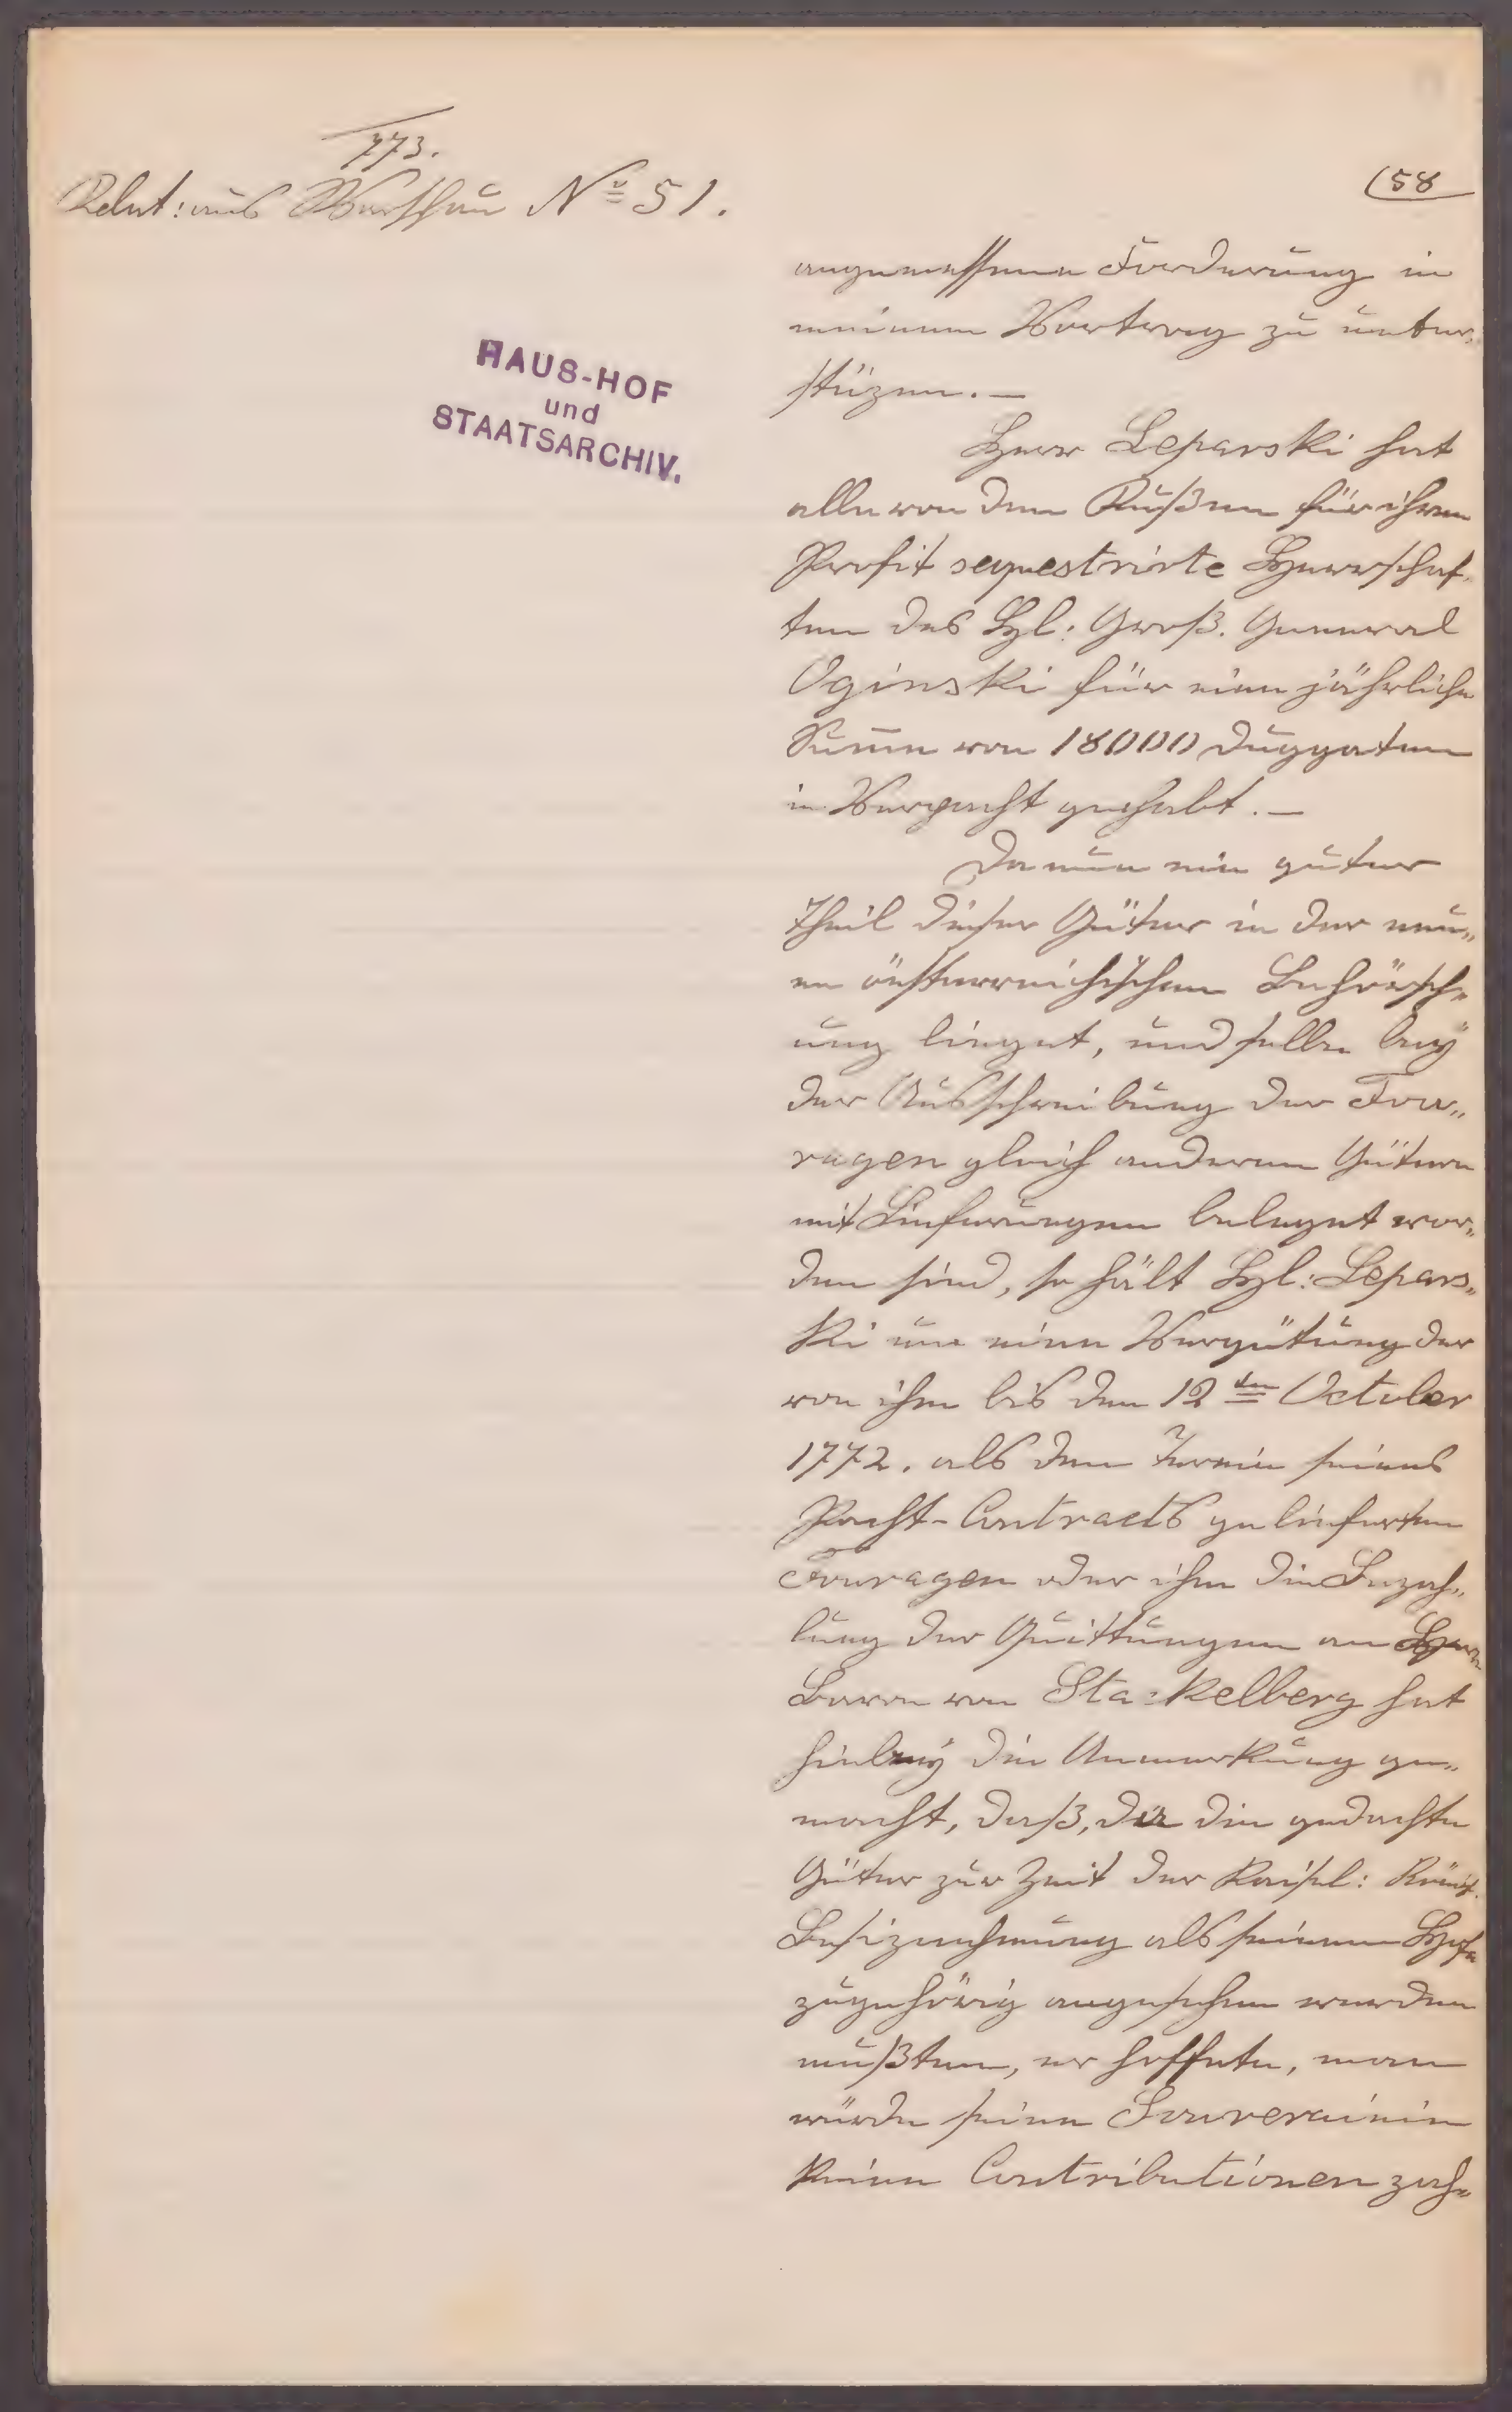 773.
Relat: aus Warschau Nº 51.
(58
HAUS-HOF
und
STAATSARCHIV.
angemessene Forderung in
meinem Vortrag zu unter„
stüzen. —
Herr Leparski hat
alle von den Rußen für ihren
Profit sequestrirte Herrschaf„
ten des H: Groß. General
Oginski für eine jährliche
Sum̄e von 18000 Duggaten
in Verpacht gehabt. —
Da nun ein guter
Theil dieser Güter in der neu„
en österreichischen Beherrsch„
ung lieget, und selbe bey
der Ausschreibung der Fou„
ragen gleich anderen Gütern
mit Lieferungen beleget wor„
den sind, so hält H: Lepars„
ki um eine Vergütung der
von ihm bis den 12ten October
1772. als dem Termin seines
Pacht-Contracts gelieferten
Fouragen oder ihm die Bezah„
lung der Quittungen an Herrn
Baron von Stackelberg hat
hiebey die Anmerkung ge„
macht, daß, da die gedachte
Güter zur Zeit der Kaisel: Königl.
Besiznehmung als seinem Hofe
zugehörig angesehen werden
mußten, er hoffete, man
würde seine Souverainin
keine Contributionen zah„